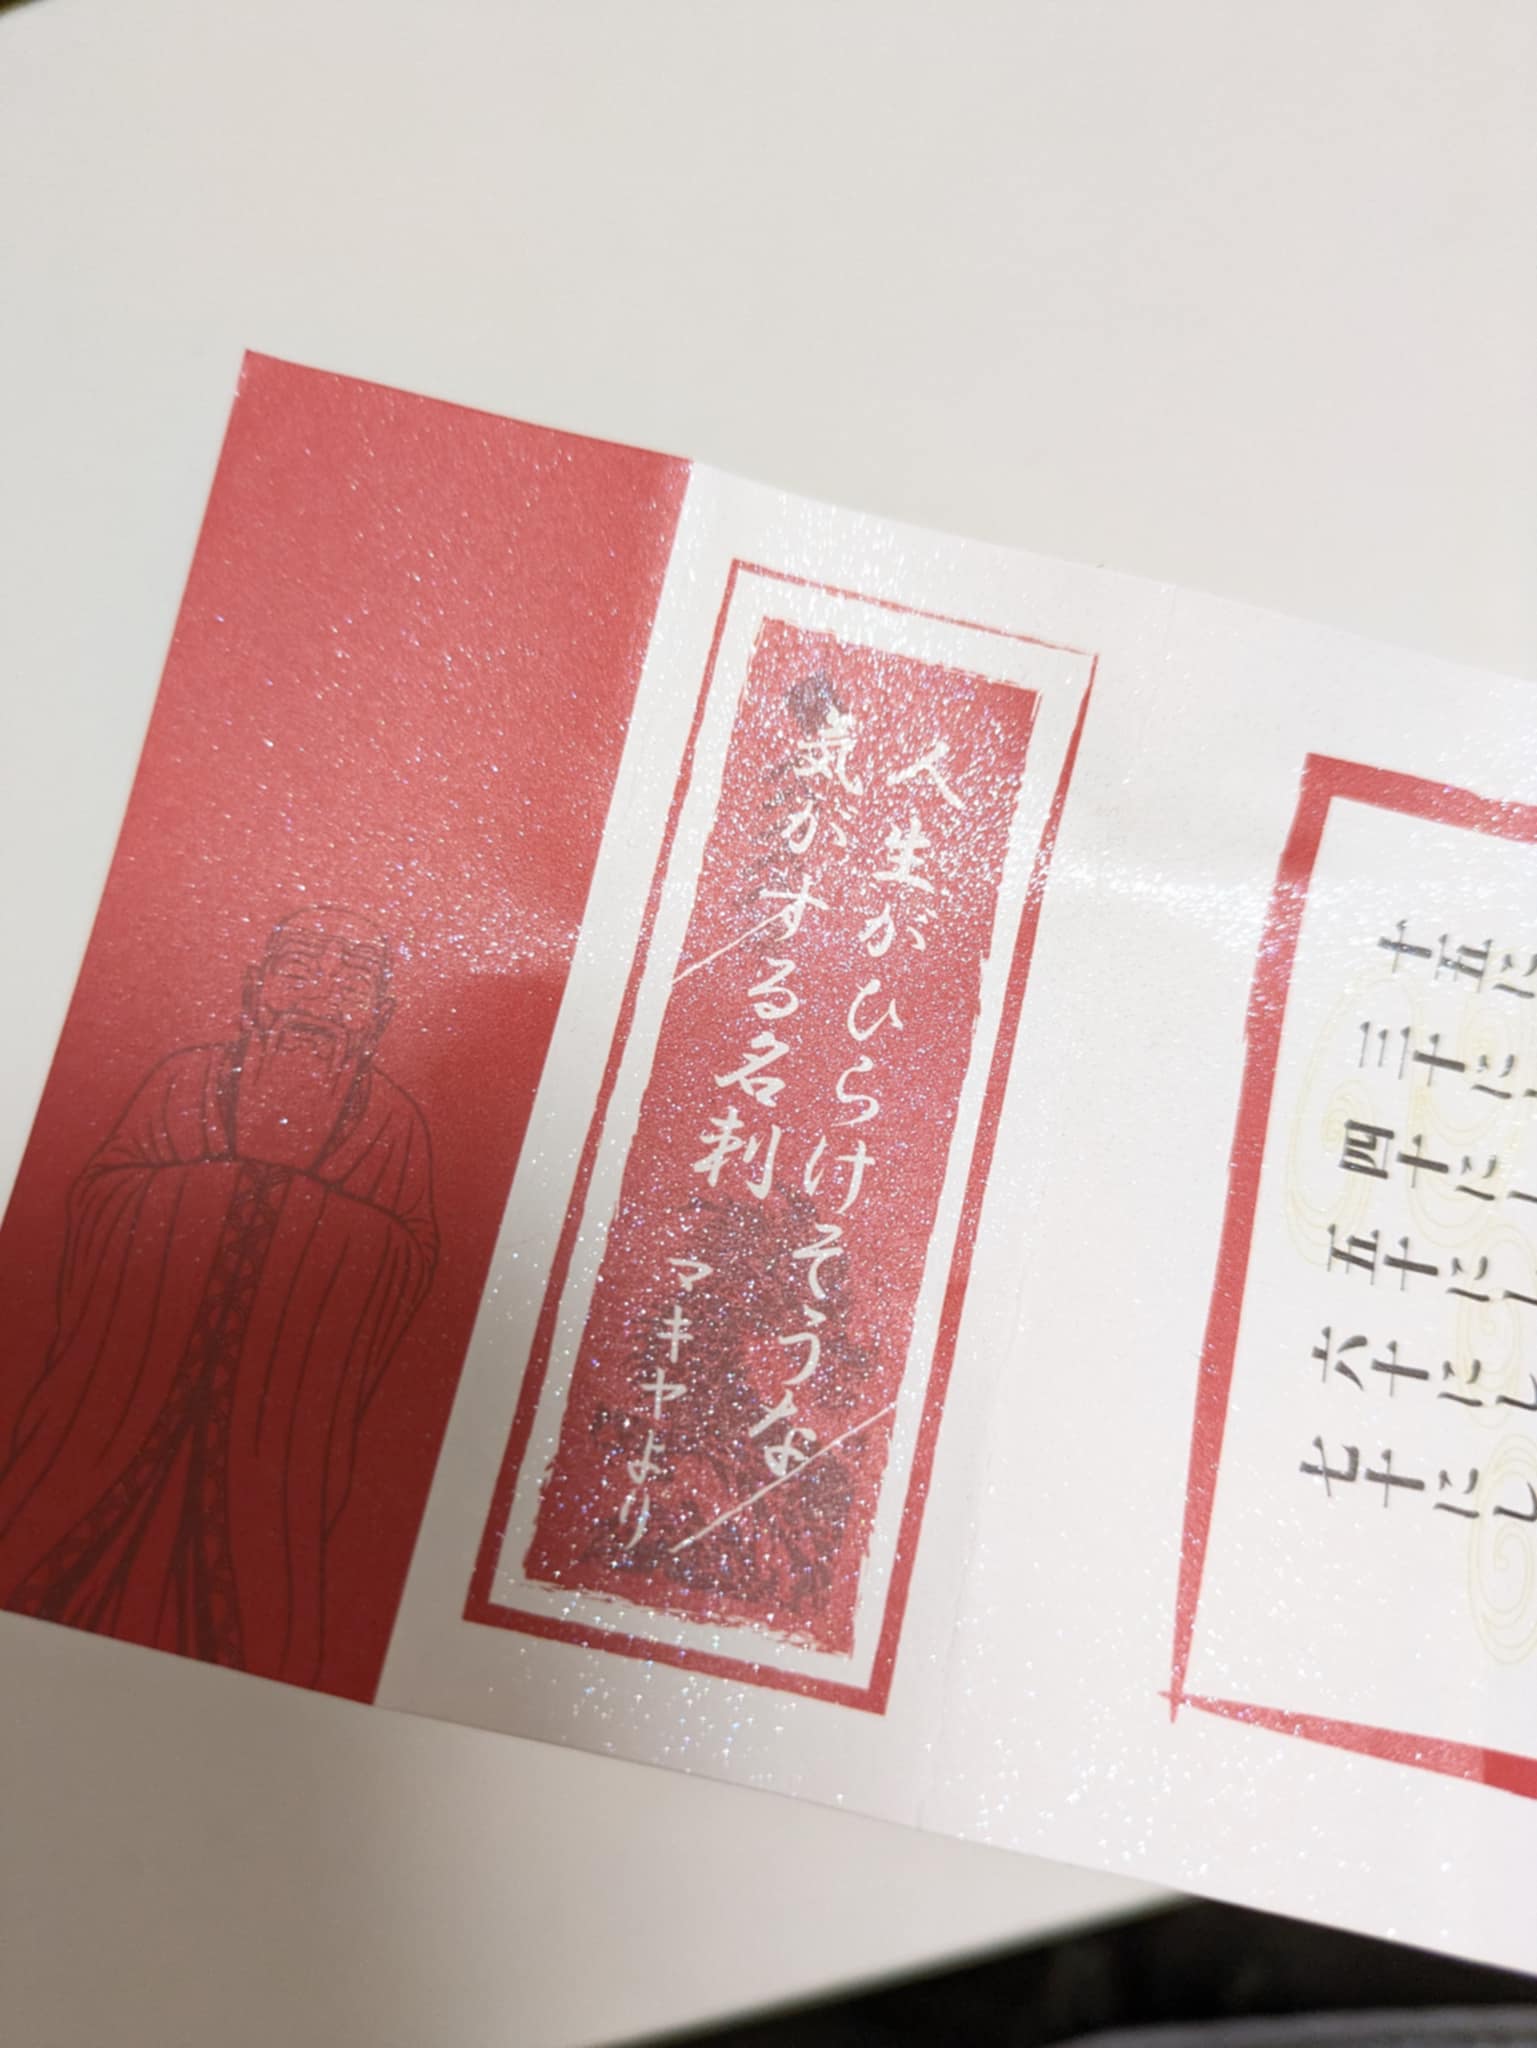 人生がひらけそうな
気がする名刺
マキヤより
十五に
三十に
四十にし
五十にし
六十にし
七十にし